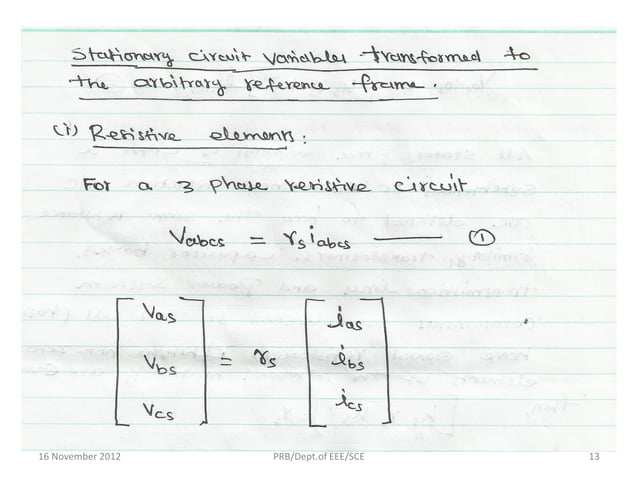 Stationary circuit variables transformed to
the arbitrary reference frame.
(i) Resistive elements:
For a 3 phase resistive circuit
Vabcs = rs iabcs ——— ①
[Vas] [ias]
[Vbs] = rs [ibs]
[Vcs] [ics]
16 November 2012 PRB/Dept.of EEE/SCE 13